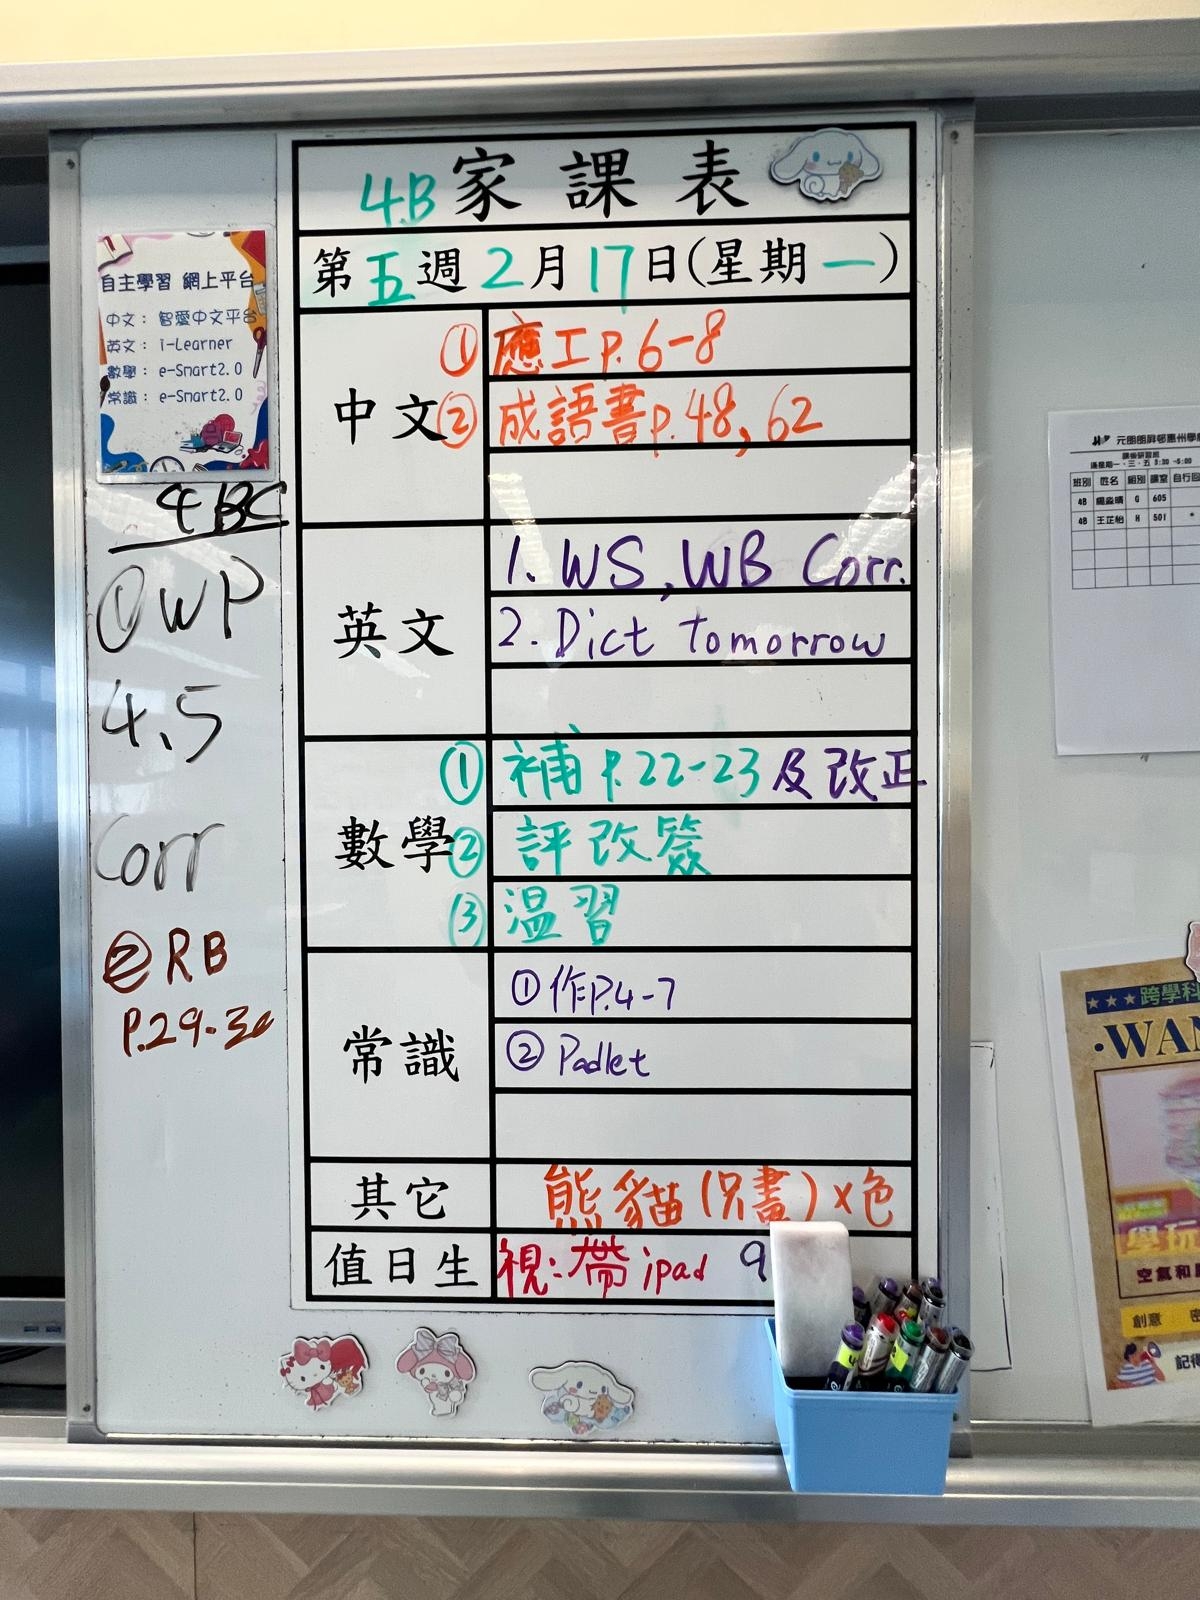 4B 家課表
第五週2月17日(星期一)
中文
① 應工p.6-8
② 成語書p.48,62
英文
1. WS, WB Corr.
2. Dict tomorrow
數學
① 補 p.22-23及改正
② 評改簽
③ 温習
常識
① 作P.4-7
② Padlet
其它
熊貓(只畫)x色
值日生
視:帶ipad 9
自主學習 網上平台
中文: 智愛中文平台
英文: i-Learner
數學: e-Smart2.0
常識: e-Smart2.0
4BC
① WP
4.5
Corr
② RB
P.29-30
元朗朗屏邨惠州學
課後研習班
逢星期一、三、五 3:30 -5:00
班別 姓名 組別 課室 自行回
4B G 605
4B 王芷怡 H 501 *
跨學科
WAN
學玩
空氣和
創意
記得